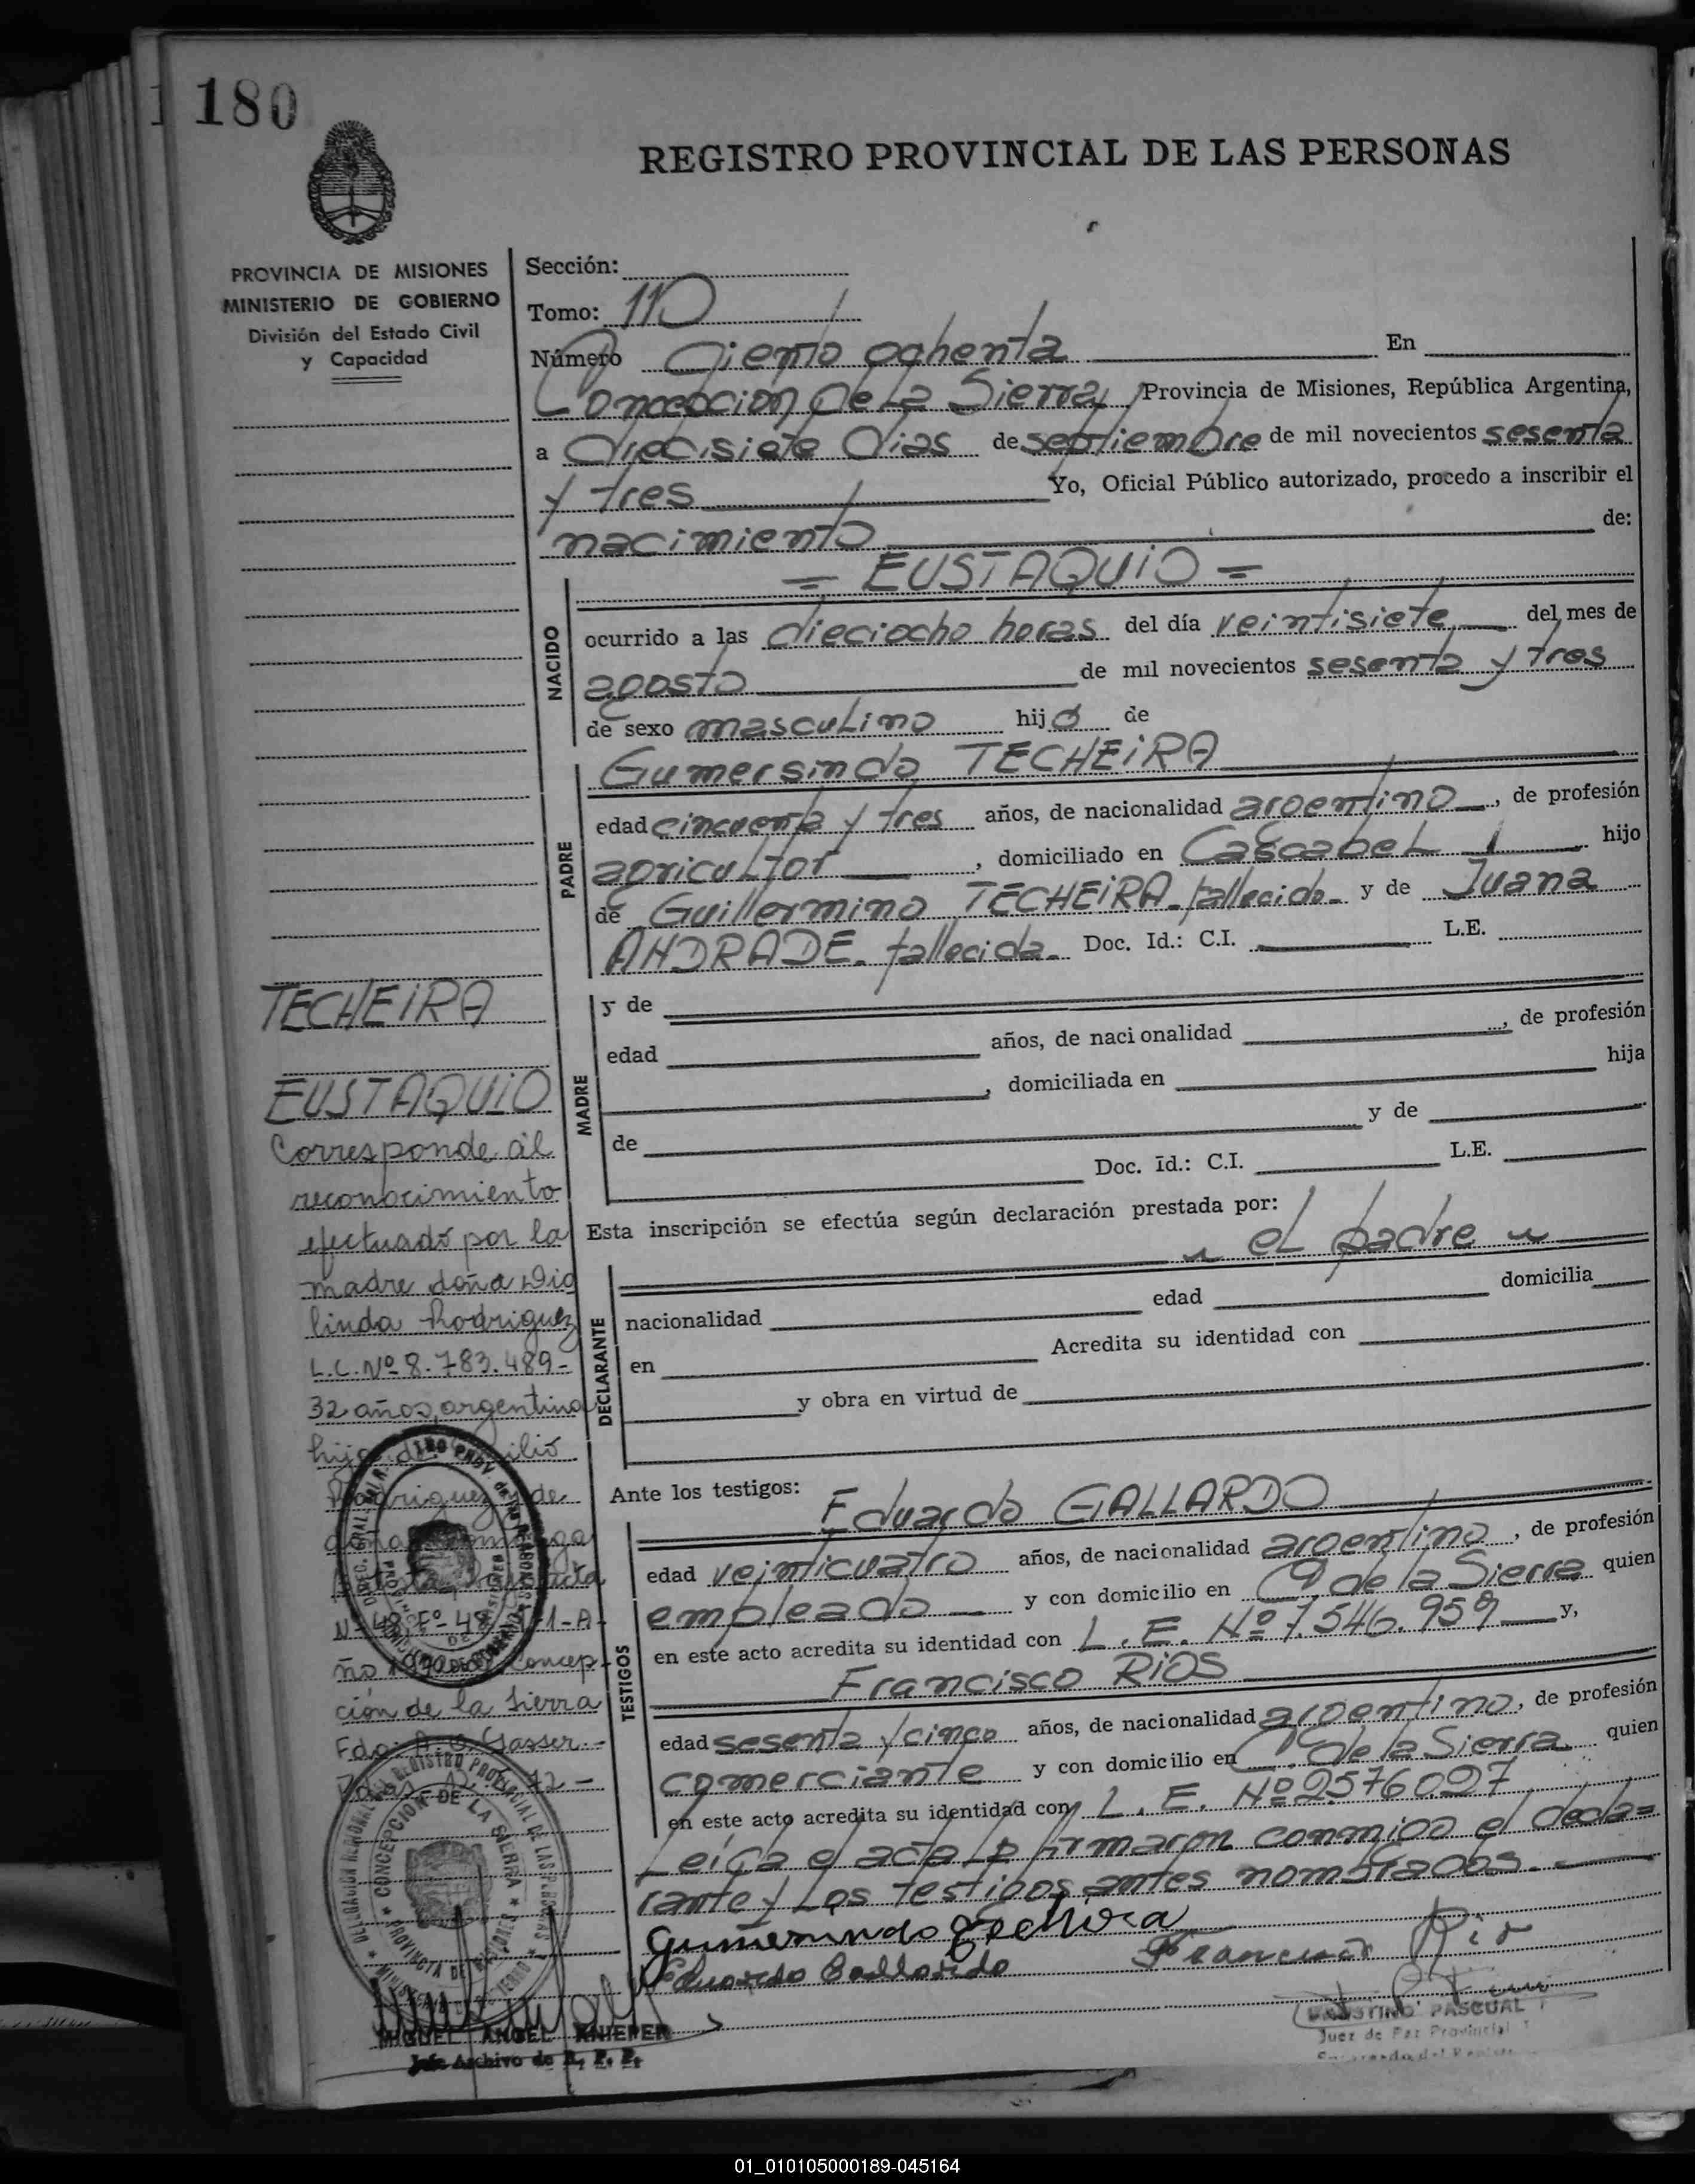 180
REGISTRO PROVINCIAL DE LAS PERSONAS
PROVINCIA DE MISIONES
MINISTERIO DE GOBIERNO
División del Estado Civil
y Capacidad
TECHEIRA
EUSTAQUIO
Corresponde al
reconocimiento
efectuado por la
madre doña Dig
linda Rodriguez
L.C. Nº 8.783.489-
32 años, argentina
hija de
Rodriguez y de
doña
Nº 48, Fº 48
Concep
ción de la Sierra
Fdo: Gasser.-
Sección:
Tomo: 110
Número Ciento ochenta En
Concepcion de La Sierra, Provincia de Misiones, República Argentina,
a diecisiete dias de septiembre de mil novecientos sesenta
y tres Yo, Oficial Público autorizado, procedo a inscribir el
nacimiento de:
= EUSTAQUIO =
NACIDO
ocurrido a las dieciocho horas del día veintisiete del mes de
agosto de mil novecientos sesenta y tres
de sexo masculino hijo de
PADRE
Gumersindo TECHEIRA
edad cincuenta y tres años, de nacionalidad argentino, de profesión
agricultor, domiciliado en Cascabel hijo
de Guillermino TECHEIRA. fallecido. y de Juana
ANDRADE. fallecida. Doc. Id.: C.I. L.E.
MADRE
y de
edad años, de nacionalidad , de profesión
, domiciliada en hija
de y de
Doc. Id.: C.I. L.E.
Esta inscripción se efectúa según declaración prestada por:
el padre
DECLARANTE
nacionalidad edad domicilia
en Acredita su identidad con
y obra en virtud de
Ante los testigos:
TESTIGOS
Eduardo GALLARDO
edad veinticuatro años, de nacionalidad argentino, de profesión
empleado y con domicilio en C. de la Sierra quien
en este acto acredita su identidad con L. E. Nº 7.546.959 y,
Francisco RIOS
edad sesenta y cinco años, de nacionalidad argentino, de profesión
comerciante y con domicilio en C. de la Sierra quien
en este acto acredita su identidad con L. E. Nº 2576027
Leída el acta la firmaron conmigo el decla=
rante y Los testigos antes nombrados.
Gumersindo Techeira
Eduardo Gallardo Francisco Rio
FAUSTINO PASCUAL
Juez de Paz Provincial
DELEGACION REGIONAL DEL REGISTRO PROVINCIAL DE LAS PERSONAS
CONCEPCION DE LA SIERRA
PROVINCIA DE MISIONES
MIGUEL ANGEL KNIEPER
Jefe Archivo de R. P. P.
01_010105000189-045164